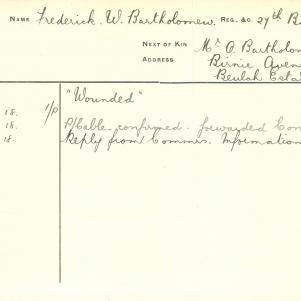 NAME Frederick. W. Bartholomew. REG. &C. 27th Ba
NEXT OF KIN Mr O. Bartholom
ADDRESS Birnie Aven
Beulah Esta
"Wounded"
18. 1/P
18. P/Cable confirmed. forwarded Com
18. Reply from Commrs. Information